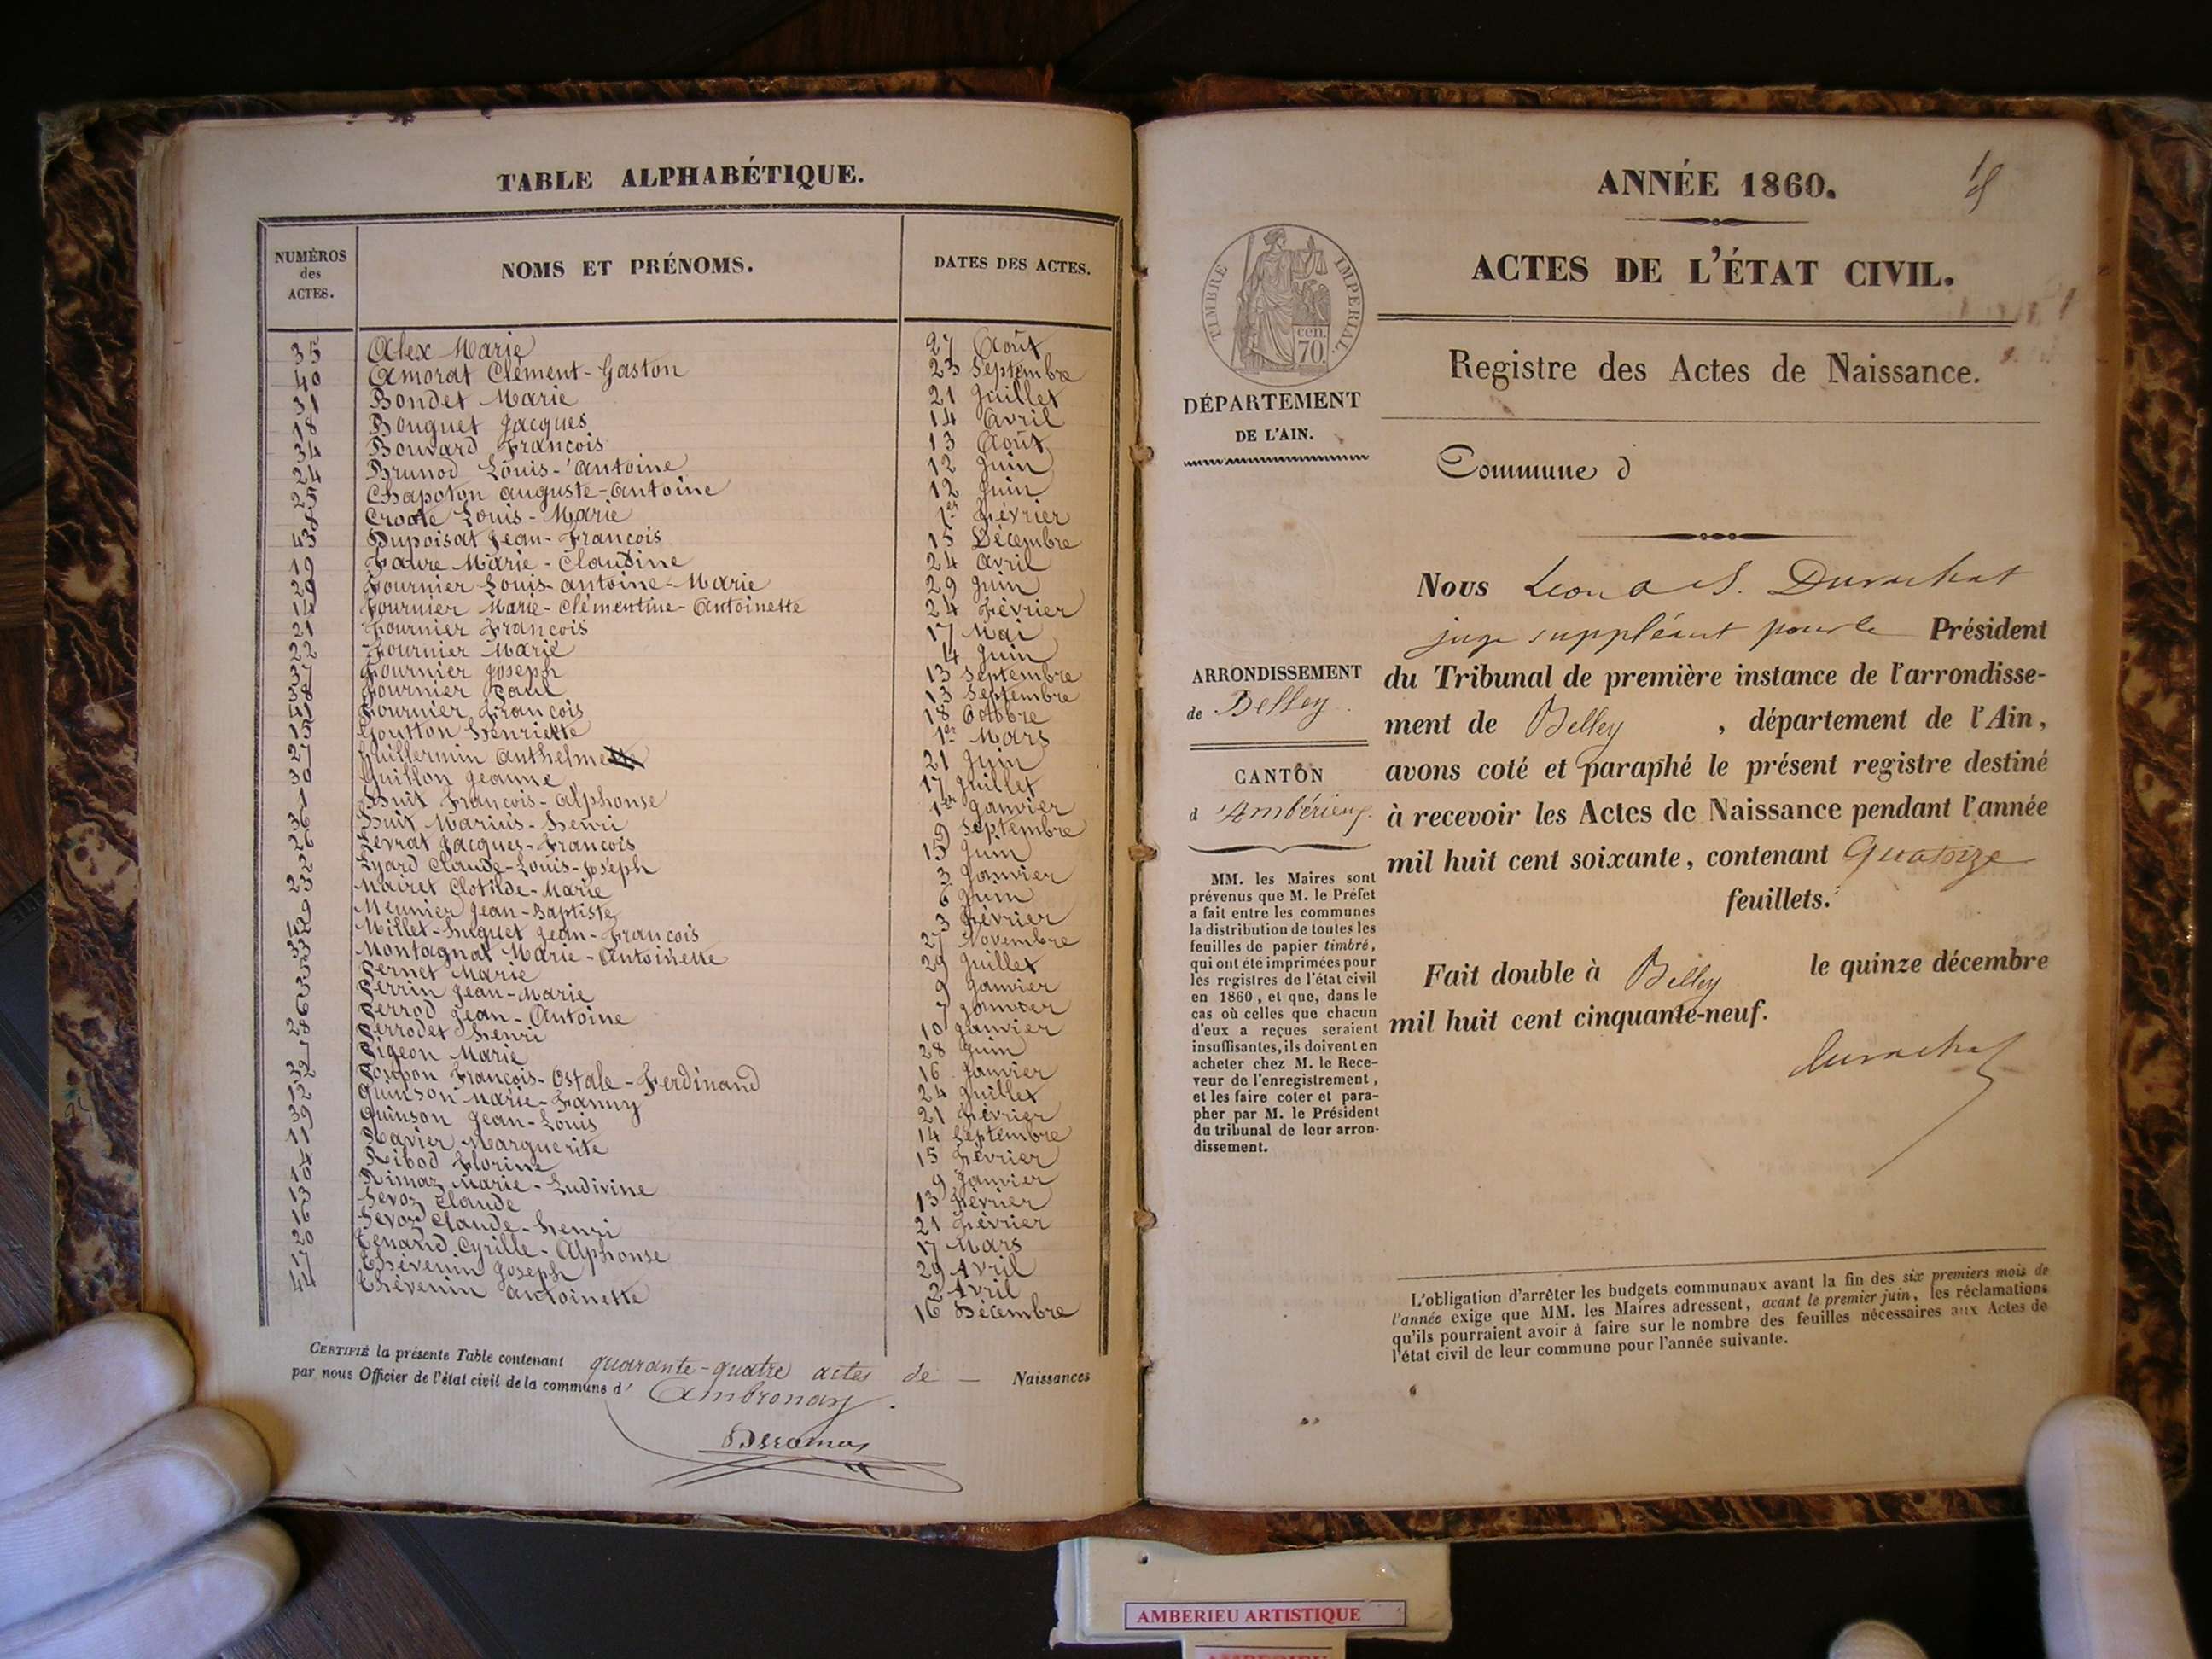 TABLE ALPHABÉTIQUE.
NUMÉROS des ACTES. NOMS ET PRÉNOMS. DATES DES ACTES.
35 Alex Marie 27 Août
40 Amorat Clément-Gaston 23 Septembre
31 Bondet Marie 21 Juillet
18 Bouquet Jacques 14 Avril
34 Bouvard François 13 Août
24 Brunod Louis-Antoine 12 Juin
25 Chapoton Auguste-Antoine 12 Juin
8 Louis-Marie 1er Février
43 Dupoisat Jean-François 15 Décembre
19 Favre Marie-Claudine 24 Avril
29 Fournier Louis-Antoine-Marie 29 Juin
14 Fournier Marie-Clémentine-Antoinette 24 Février
21 Fournier François 17 Mai
22 Fournier Marie 4 Juin
37 Fournier Joseph 13 Septembre
38 Fournier Paul 13 Septembre
41 Fournier François 18 Octobre
15 Goutton Henriette 1er Mars
27 Guillermin Anthelme 21 Juin
30 Guillon Jeanne 17 Juillet
1 Huit François-Alphonse 1er Janvier
36 Huit Marius-Henri 9 Septembre
26 Levrat Jacques-François 15 Juin
2 Lyard Claude-Louis-Joseph 3 Janvier
23 Mairet Clotilde-Marie 6 Juin
9 Meunier Jean-Baptiste 3 Février
42 Millet-Huguet Jean-François 27 Novembre
33 Montagnat Marie-Antoinette 29 Juillet
5 Pernet Marie 9 Janvier
3 Perrin Jean-Marie 7 Janvier
6 Perrod Jean-Antoine 10 Janvier
28 Perrodet Henri 28 Juin
7 Pigeon Marie 16 Janvier
32 Poupon François-Ostale-Ferdinand 24 Juillet
12 Quinson Marie-Fanny 21 Février
39 Quinson Jean-Louis 14 Septembre
11 Ravier Marguerite 15 Février
4 Ribod Florine 9 Janvier
10 Rimaz Marie-Ludivine 13 Février
13 Sevoz Claude 21 Février
16 Sevoz Claude-Henri 17 Mars
20 Tenand Cyrille-Alphonse 29 Avril
17 Thévenin Joseph 2 Avril
44 Thévenin Antoinette 16 Décembre
CERTIFIÉ la présente Table contenant quarante-quatre actes de — Naissances
par nous Officier de l'état civil de la commune d' Ambronay.
ANNÉE 1860.
ACTES DE L'ÉTAT CIVIL.
TIMBRE IMPERIAL.
cen. 70.
Registre des Actes de Naissance.
DÉPARTEMENT
DE L'AIN.
Commune d
Nous Durochat
juge suppléant pour le Président
ARRONDISSEMENT
de Belley.
du Tribunal de première instance de l'arrondisse-
ment de Belley, département de l'Ain,
CANTON
d'Ambérieux.
avons coté et paraphé le présent registre destiné
à recevoir les Actes de Naissance pendant l'année
mil huit cent soixante, contenant Quatorze
feuillets.
MM. les Maires sont
prévenus que M. le Préfet
a fait entre les communes
la distribution de toutes les
feuilles de papier timbré,
qui ont été imprimées pour
les registres de l'état civil
en 1860, et que, dans le
cas où celles que chacun
d'eux a reçues seraient
insuffisantes, ils doivent en
acheter chez M. le Rece-
veur de l'enregistrement,
et les faire coter et para-
pher par M. le Président
du tribunal de leur arron-
dissement.
Fait double à Belley le quinze décembre
mil huit cent cinquante-neuf.
Durochat
L'obligation d'arrêter les budgets communaux avant la fin des six premiers mois de
l'année exige que MM. les Maires adressent, avant le premier juin, les réclamations
qu'ils pourraient avoir à faire sur le nombre des feuilles nécessaires aux Actes de
l'état civil de leur commune pour l'année suivante.
AMBERIEU ARTISTIQUE